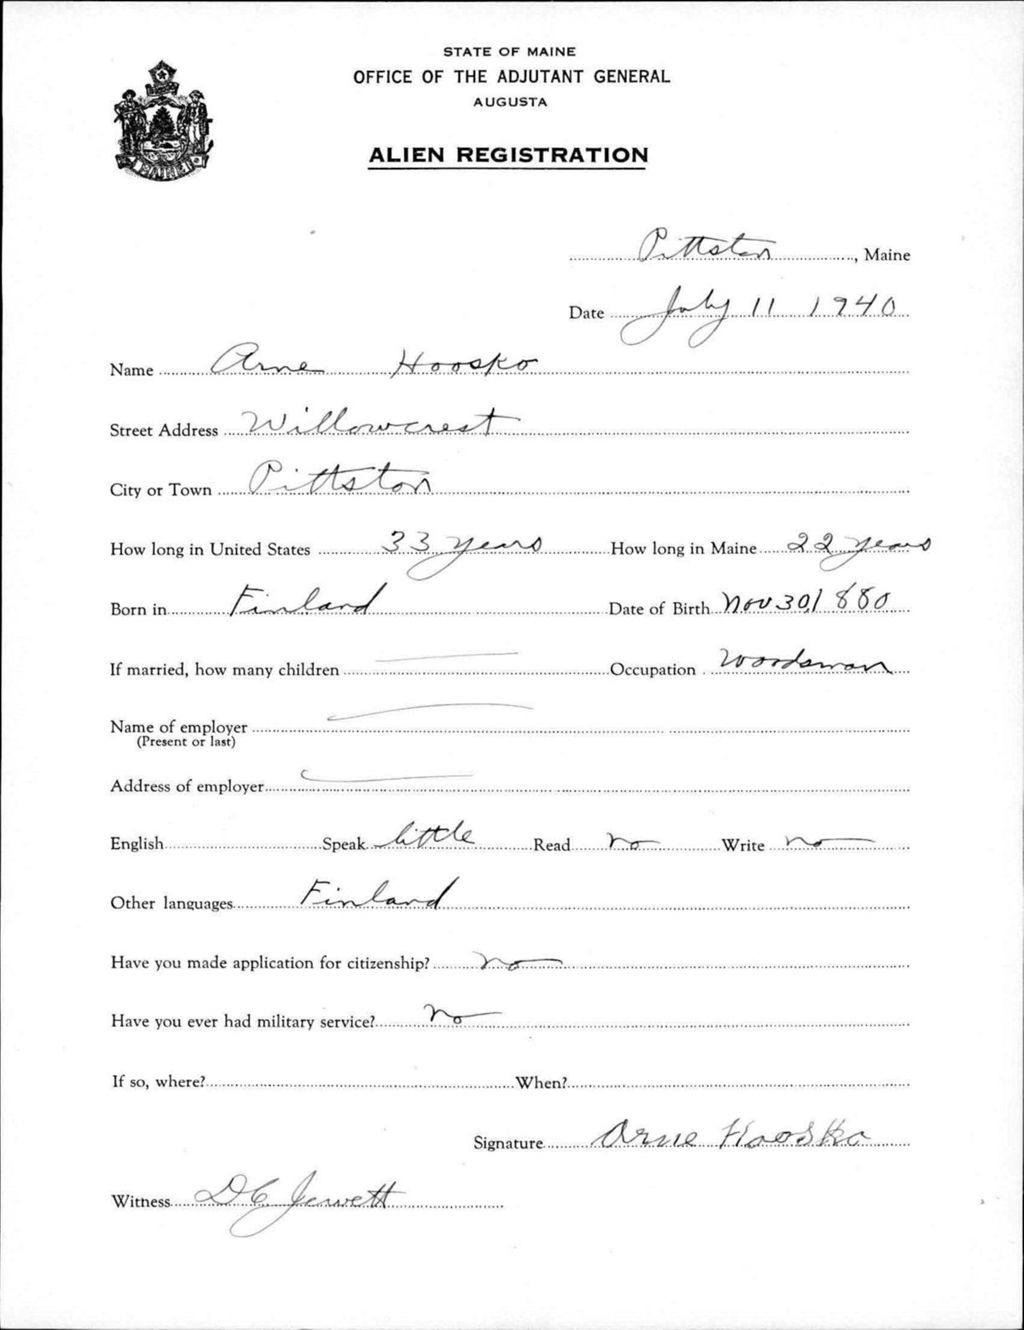 STATE OF MAINE
OFFICE OF THE ADJUTANT GENERAL
AUGUSTA
ALIEN REGISTRATION
MAINE
Pittston, Maine
Date July 11 1940
Name Arne Hoosko
Street Address Willowcrest
City or Town Pittston
How long in United States 33 years How long in Maine 22 years
Born in Finland Date of Birth Nov 30, 1880
If married, how many children — Occupation Woodsman
Name of employer —
(Present or last)
Address of employer —
English Speak little Read no Write no
Other languages Finland
Have you made application for citizenship? no
Have you ever had military service? no
If so, where? When?
Signature Arne Hoosko
Witness D C Jewett